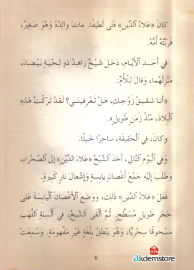 كَانَ «عَلَاءُ الدِّينِ» فَتًى لَطِيفًا. مَاتَ وَالِدُهُ وَهُوَ صَغِيرٌ،
فَرَبَّتْهُ أُمُّهُ.
فِي أَحَدِ الْأَيَّامِ، دَخَلَ شَيْخٌ زَاهِدٌ ذُو لِحْيَةٍ بَيْضَاءَ،
مَنْزِلَهُمَا، وَقَالَ لِلْأُمِّ:
«أَنَا شَقِيقُ زَوْجِكِ، هَلْ تَعْرِفِينَنِي؟ لَقَدْ تَرَكْتُ هَذِهِ
الْبِلَادَ، مُنْذُ زَمَنٍ طَوِيلٍ».
وَكَانَ، فِي الْحَقِيقَةِ، سَاحِرًا خَبِيثًا.
وَفِي الْيَوْمِ التَّالِي، أَخَذَ الشَّيْخُ «عَلَاءَ الدِّينِ» إِلَى الصَّحْرَاءِ،
وَطَلَبَ إِلَيْهِ جَمْعَ أَغْصَانٍ يَابِسَةٍ وَإِشْعَالَ نَارٍ كَبِيرَةٍ.
فَعَلَ «عَلَاءُ الدِّينِ» ذَلِكَ، وَوَضَعَ الْأَغْصَانَ الْيَابِسَةَ عَلَى
حَجَرٍ طَوِيلٍ مُسَطَّحٍ. ثُمَّ أَلْقَى الشَّيْخُ، فِي أَلْسِنَةِ اللَّهَبِ
مَسْحُوقًا سِحْرِيًّا، وَهُوَ يَنْطِقُ بِلُغَةٍ غَيْرِ مَفْهُومَةٍ. وَسُمِعَتْ
6
dkdemstore